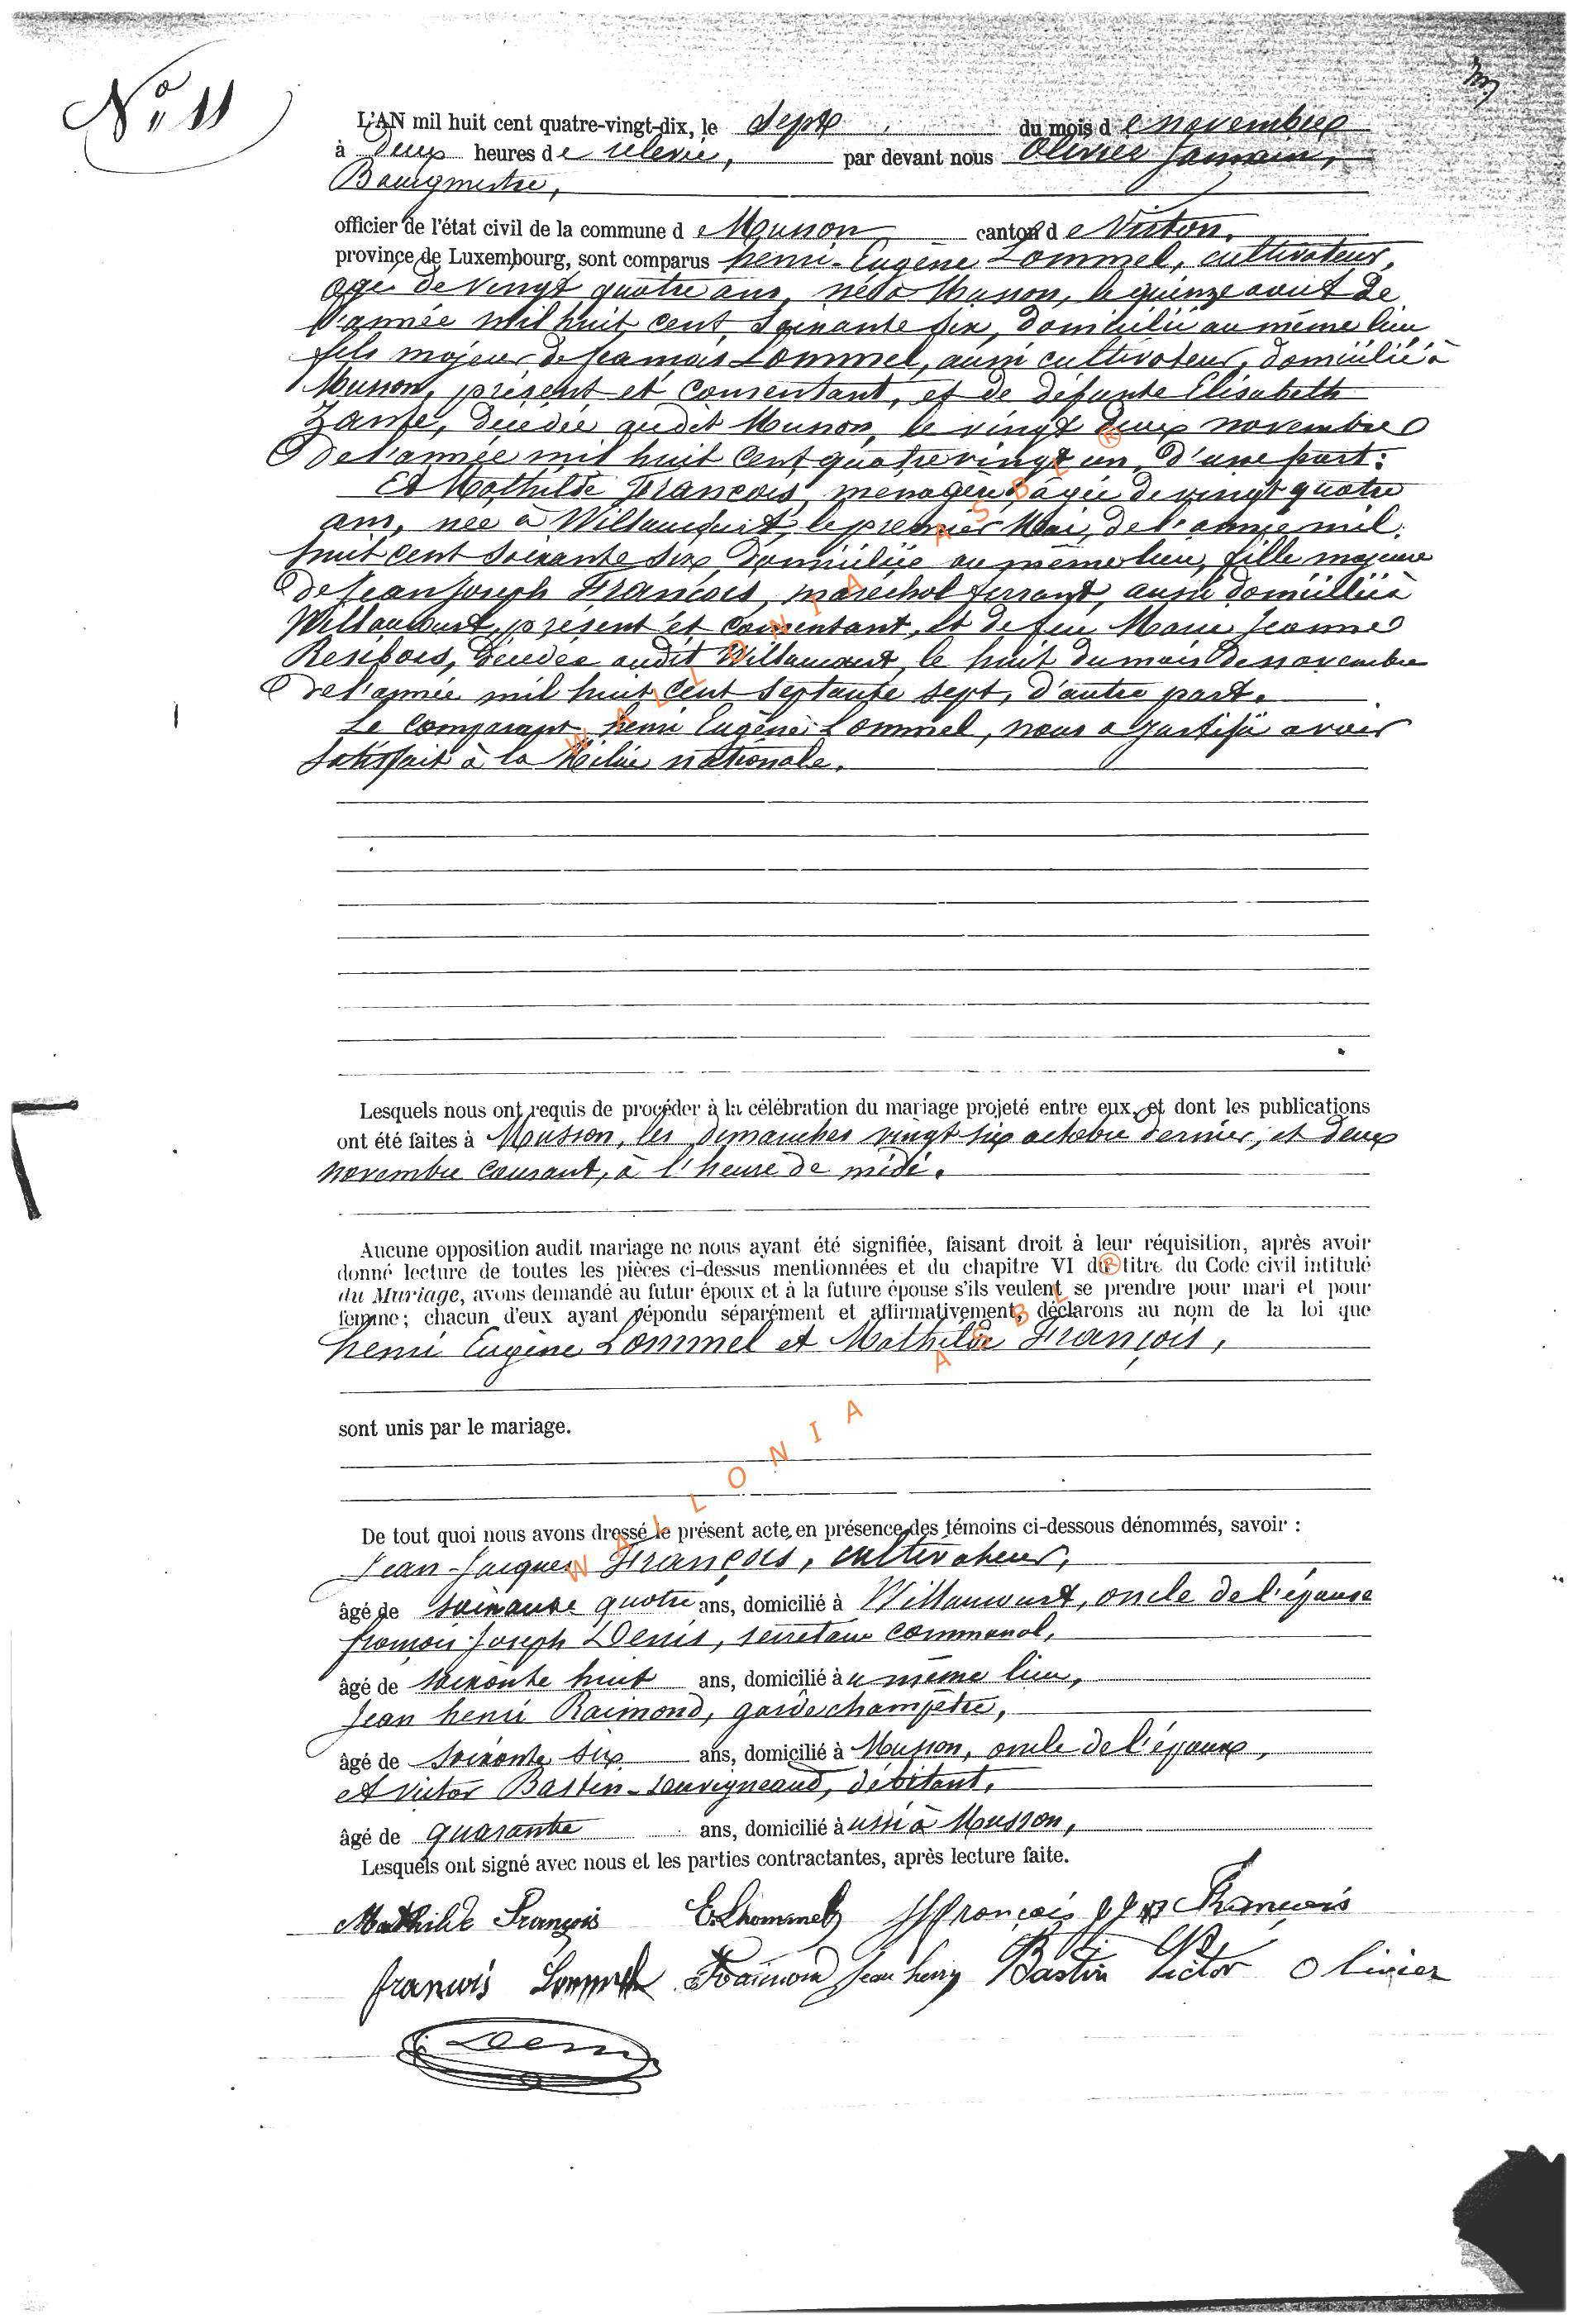 N° 11
L'AN mil huit cent quatre-vingt-dix, le sept du mois de novembre
à deux heures de relevée, par devant nous Olivier
Bourgmestre,
officier de l'état civil de la commune de Musson canton de Virton,
province de Luxembourg, sont comparus henri-Eugène Lommel, cultivateur,
agé de vingt quatre ans, né à Musson, le quinze aout de
l'année mil huit cent soixante six, domicilié au même lieu
fils majeur de françois Lommel, aussi cultivateur, domicilié à
Musson, présent et consentant, et de défunte Elisabeth
Zante, décédée audit Musson, le vingt deux novembre
de l'année mil huit cent quatre vingt un, d'une part:
Et Mathilde François, ménagère, âgée de vingt quatre
ans, née à Willancourt, le premier Mai, de l'année mil
huit cent soixante six, domiciliée au même lieu, fille majeure
de Jean Joseph François, maréchal ferrant, aussi domicilié à
Willancourt, présent et consentant, et de feu Marie Jeanne
Resibois, décédée audit Willancourt, le huit du mois de novembre
de l'année mil huit cent septante sept, d'autre part.
Le comparant henri Eugène Lommel, nous a justifié avoir
satisfait à la Milice nationale.
Lesquels nous ont requis de procéder à la célébration du mariage projeté entre eux, et dont les publications
ont été faites à Musson, les dimanches vingt six octobre dernier, et deux
novembre courant, à l'heure de midi.
Aucune opposition audit mariage ne nous ayant été signifiée, faisant droit à leur réquisition, après avoir
donné lecture de toutes les pièces ci-dessus mentionnées et du chapitre VI du titre du Code civil intitulé
du Mariage, avons demandé au futur époux et à la future épouse s'ils veulent se prendre pour mari et pour
femme; chacun d'eux ayant répondu séparément et affirmativement, déclarons au nom de la loi que
henri Eugène Lommel et Mathilde François,
sont unis par le mariage.
De tout quoi nous avons dressé le présent acte en présence des témoins ci-dessous dénommés, savoir :
Jean-Jacques François, cultivateur,
âgé de soixante quatre ans, domicilié à Willancourt, oncle de l'épouse
françois-Joseph Denis, secrétaire communal,
âgé de soixante huit ans, domicilié au même lieu,
Jean henri Raimond, garde champêtre,
âgé de soixante six ans, domicilié à Musson, oncle de l'époux,
et victor Bastin-Sauvigneaud, débitant,
âgé de quarante ans, domicilié aussi à Musson,
Lesquels ont signé avec nous et les parties contractantes, après lecture faite.
Mathilde François E. Lhommel JJfrançois François
francois Lommel Raimond Jean henry Bastin Victor Olivier
Denis
WALLONIA ASBL ®
WALLONIA ASBL ®